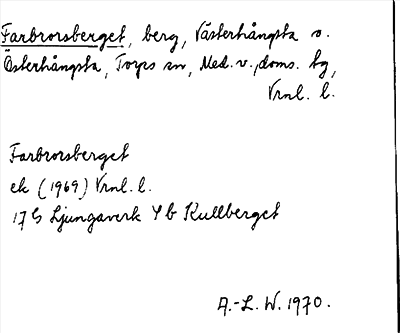 Farbrorsberget, berg, Västerhångsta o.
Österhångsta, Torps sn, Med. v. doms. tg,
Vrnl. l.
Farbrorsberget
ek (1969) Vrnl. l.
17 G Ljungaverk 4 b Kullberget
A.-L. W. 1970.